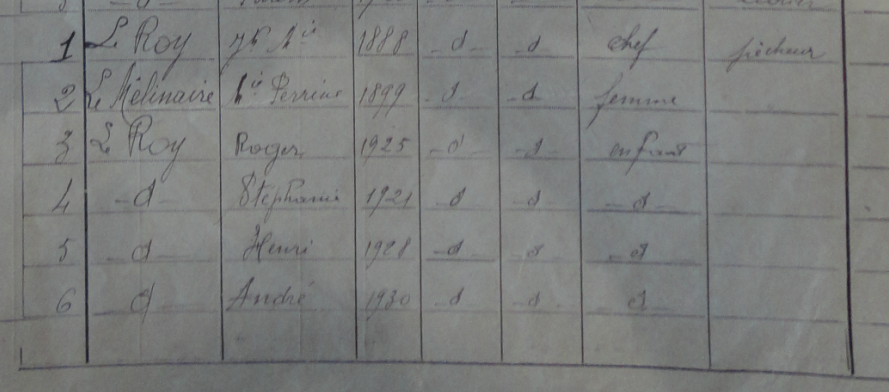 1 Le Roy Jh Mie 1888 -d- -d chef pêcheur
2 Le Mélinaire Mie Perrine 1899 -d -d femme
3 Le Roy Roger 1925 -d -d enfant
4 -d Stéphanie 1921 -d -d -d-
5 -d Henri 1928 -d -d -d
6 d André 1930 -d -d -d